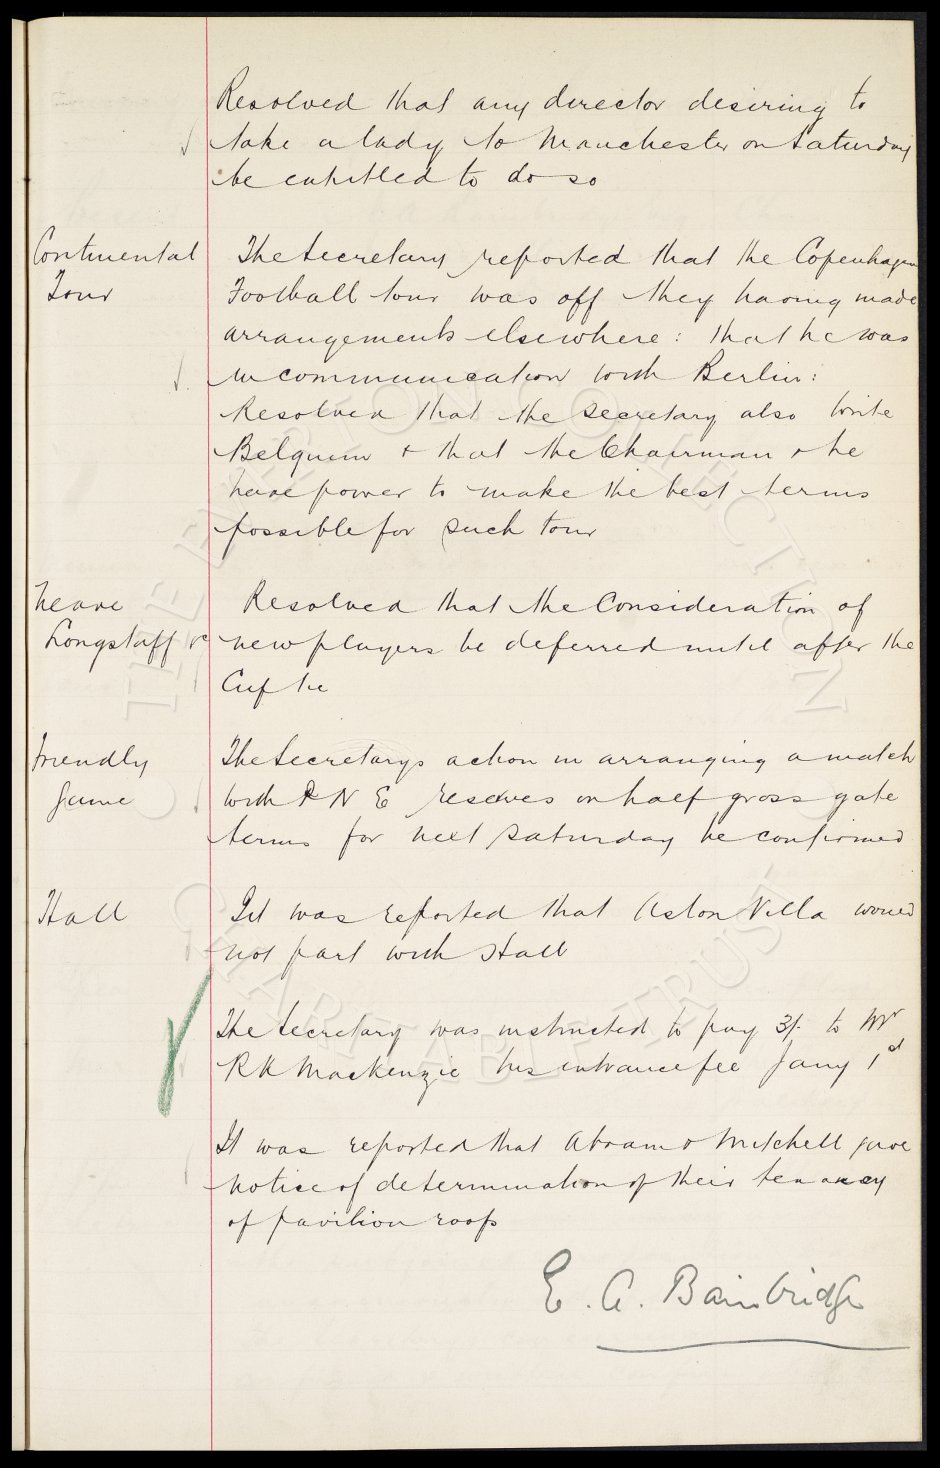 Resolved that any director desiring to
take a lady to Manchester on Saturday
be entitled to do so
Continental
Tour
The Secretary reported that the Copenhagen
Football tour was off they having made
arrangements elsewhere: that he was
in communication with Berlin:
Resolved that the Secretary also write
Belguim & that the Chairman & he
have power to make the best terms
possible for such tour
Heare
Longstaff &c
Resolved that the Consideration of
new players be deferred until after the
Cup tie
Friendly
game
The Secretarys action in arranging a match
with P N E reserves on half gross gate
terms for next Saturday be confirmed
Hall
It was reported that Aston Villa would
not part with Hall
The Secretary was instructed to pay 3/- to Mr
R K Mackenzie his entrance fee Jany 1st
It was reported that Abram & Mitchell gave
notice of determination of their tenancy
of pavilion roofs
E. A. Bainbridge
THE EVERTON COLLECTION
CHARITABLE TRUST